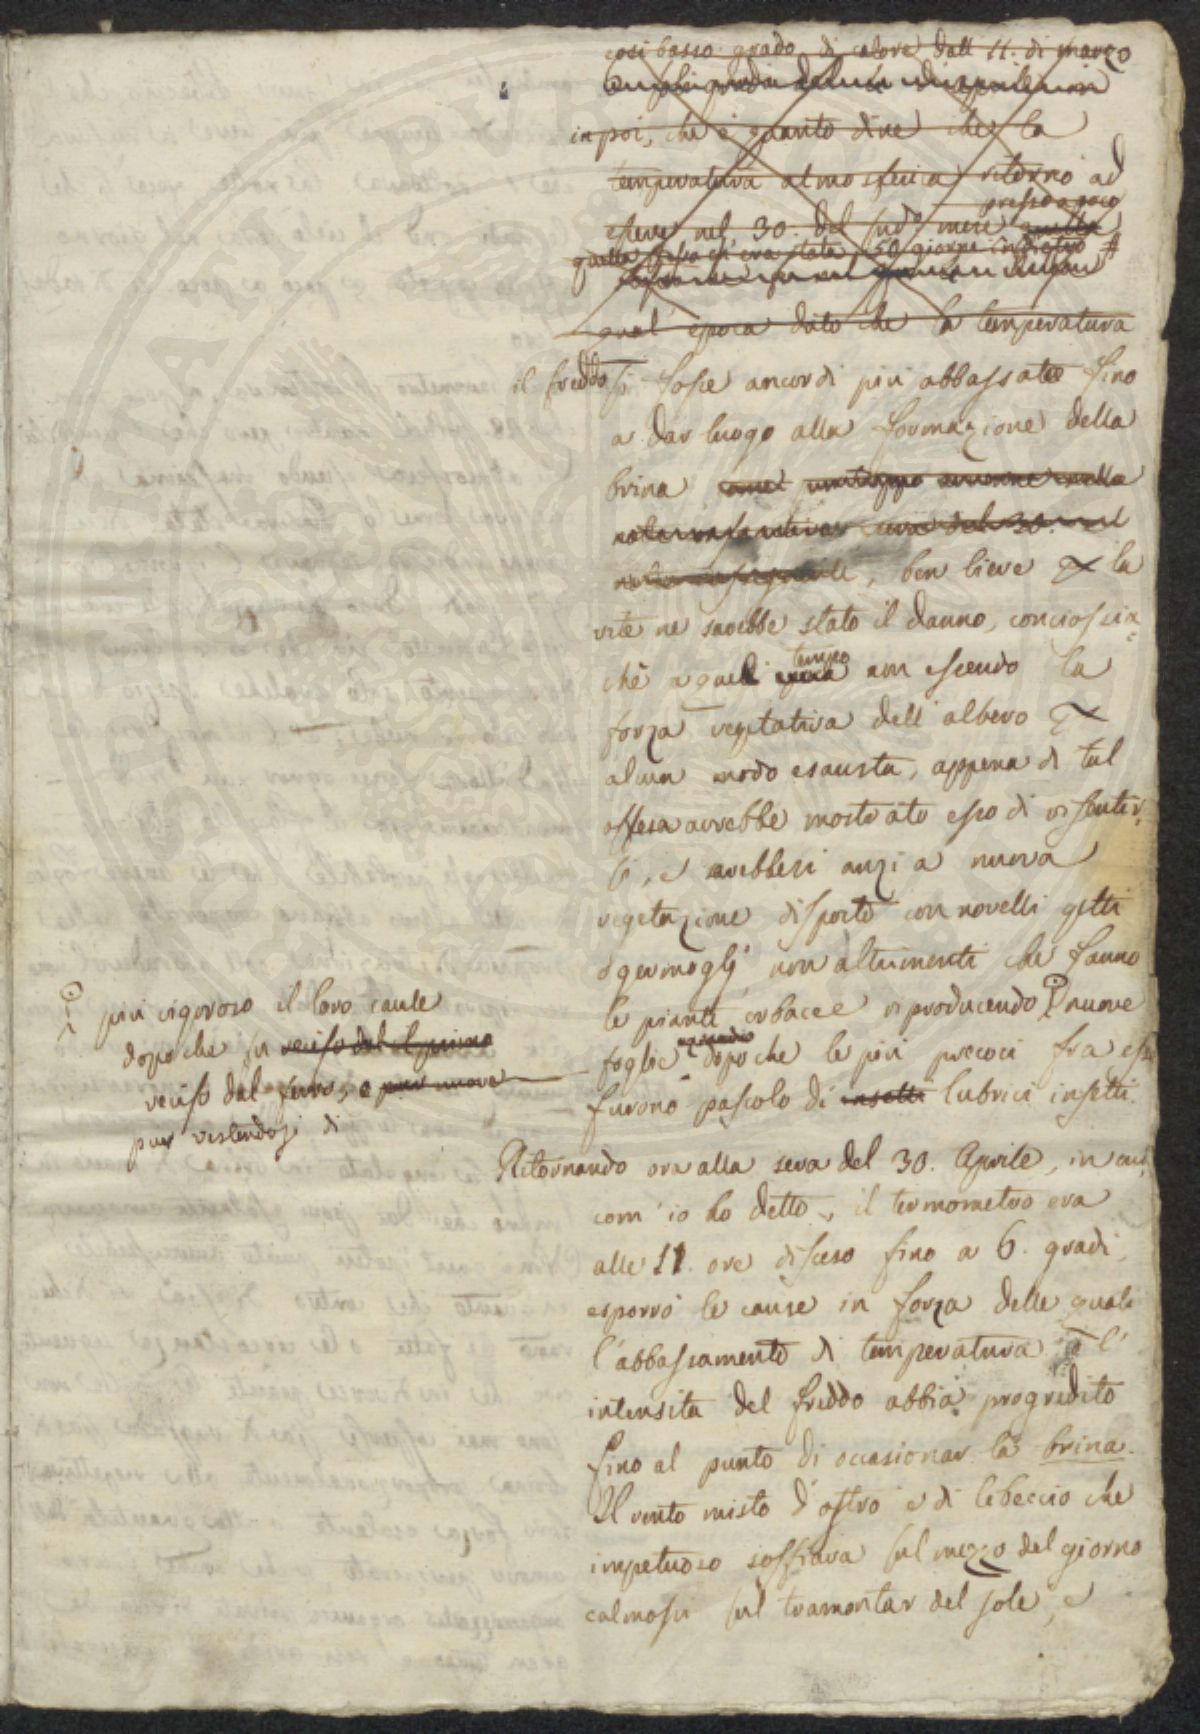 così basso grado di calore dall' 11. di marzo
in poi, che è quanto dire che la
temperatura atmosferica ritornò ad
presso a poco
essere nel 30. del sudº mese quella
quella stessa ch'era stata 50 giorni indietro #
qual' epoca dato che la temperatura
il freddo si fosse ancor di più abbassato fino
a dar luogo alla formazione della
brina
sera del 30.
, ben lieve p la
vite ne sarebbe stato il danno, conciossia
tempo
chè a quel epoca non essendo la
forza vegetativa dell' albero p
alcun modo esausta, appena di tal
offesa avrebbe mostrato esso di risentir
si, e avrebbesi anzi a nuova
vegetazione disposto con novelli getti
o germoglj non altrimenti che fanno
le piante erbacee riproducendo nuove
foglie dopo che le più precoci fra esse
furono pascolo di insetti lubrici insetti.
più vigoroso il loro caule
dopo che fu reciso dal primo
reciso dal ferro, e pur nuove
pur vestendosi di
Ritornando ora alla sera del 30. Aprile, in cui,
com' io ho detto, il termometro era
alle 11. ore disceso fino a 6. gradi,
esporrò le cause in forza delle quali
l'abbassamento di temperatura e l'
intensità del freddo abbia progredito
fino al punto di occasionar la brina.
Il vento misto d'ostro e di libeccio che
impetuoso soffiava sul mezzo del giorno
calmossi sul tramontar del sole, e